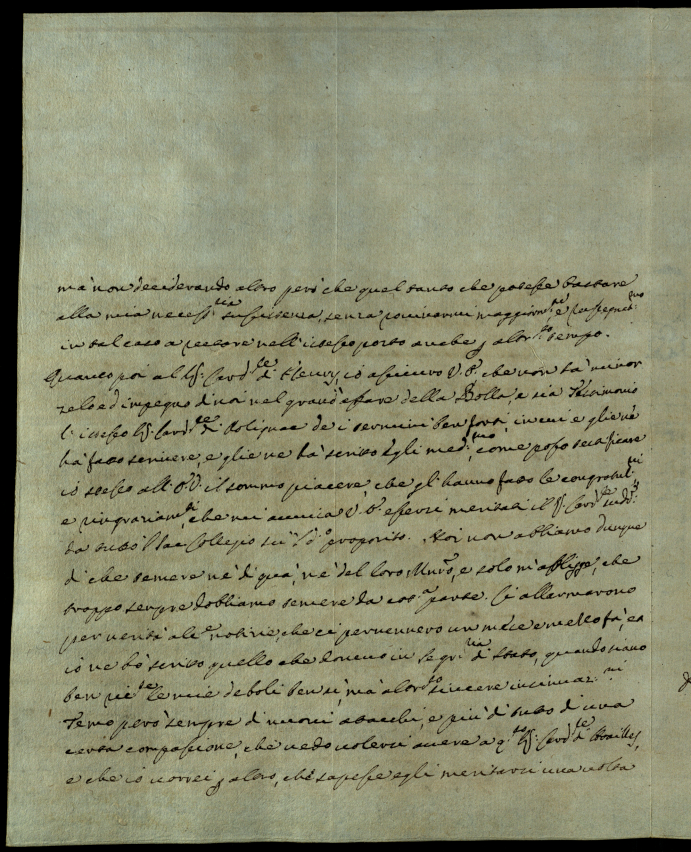 mà non desiderando altro però che quel tanto che potesse bastare
alla mia necess.ria sussistenza, senza rovinarmi maggiorm.te, e
in tal caso a restare nell'istesso posto anche p altro tempo.
Quanto poi al Sig.r Card.le di Fleury, io assicuro V.E. che non hà minor
zelo ed impegno di noi nel grand'affare della Bolla, e sia Testimonio
l'istesso Sig.r Card.le di Polignac de i termini ben forti, in cui e gliene
hà fatto scrivere, e gliene hà scritto Egli med.mo, come posso testificare
io stesso all'E.V. il sommo piacere, che gl'hanno fatto le congratul.ni
e ringraziam.ti, che mi accenna V.E. essersi meritati il Sig.r Card.le sud.o
da tutto il Sac. Collegio sù l d.o proposito. Noi non abbiamo dunque
di che temere nè di quà, nè del loro, e solo m'affligge, che
troppo sempre dobbiamo temere da cot.a parte. Ci allarmarono
per verità al.e notizie, che ci pervennero un mese e mezzo fà, ed
io ne hò scritto quello che dovevo in Segr.ria di Stato, quando siano
ben le mie deboli bensì, mà altret.to sincere insinuaz.ni
Temo però sempre di nuovi attacchi, e più di tutto di una
certa compassione, che vedo volersi avere a q.to Sig.r Card.le di Noailles,
e che io vorrei p altro, che sapesse egli meritarsi una volta